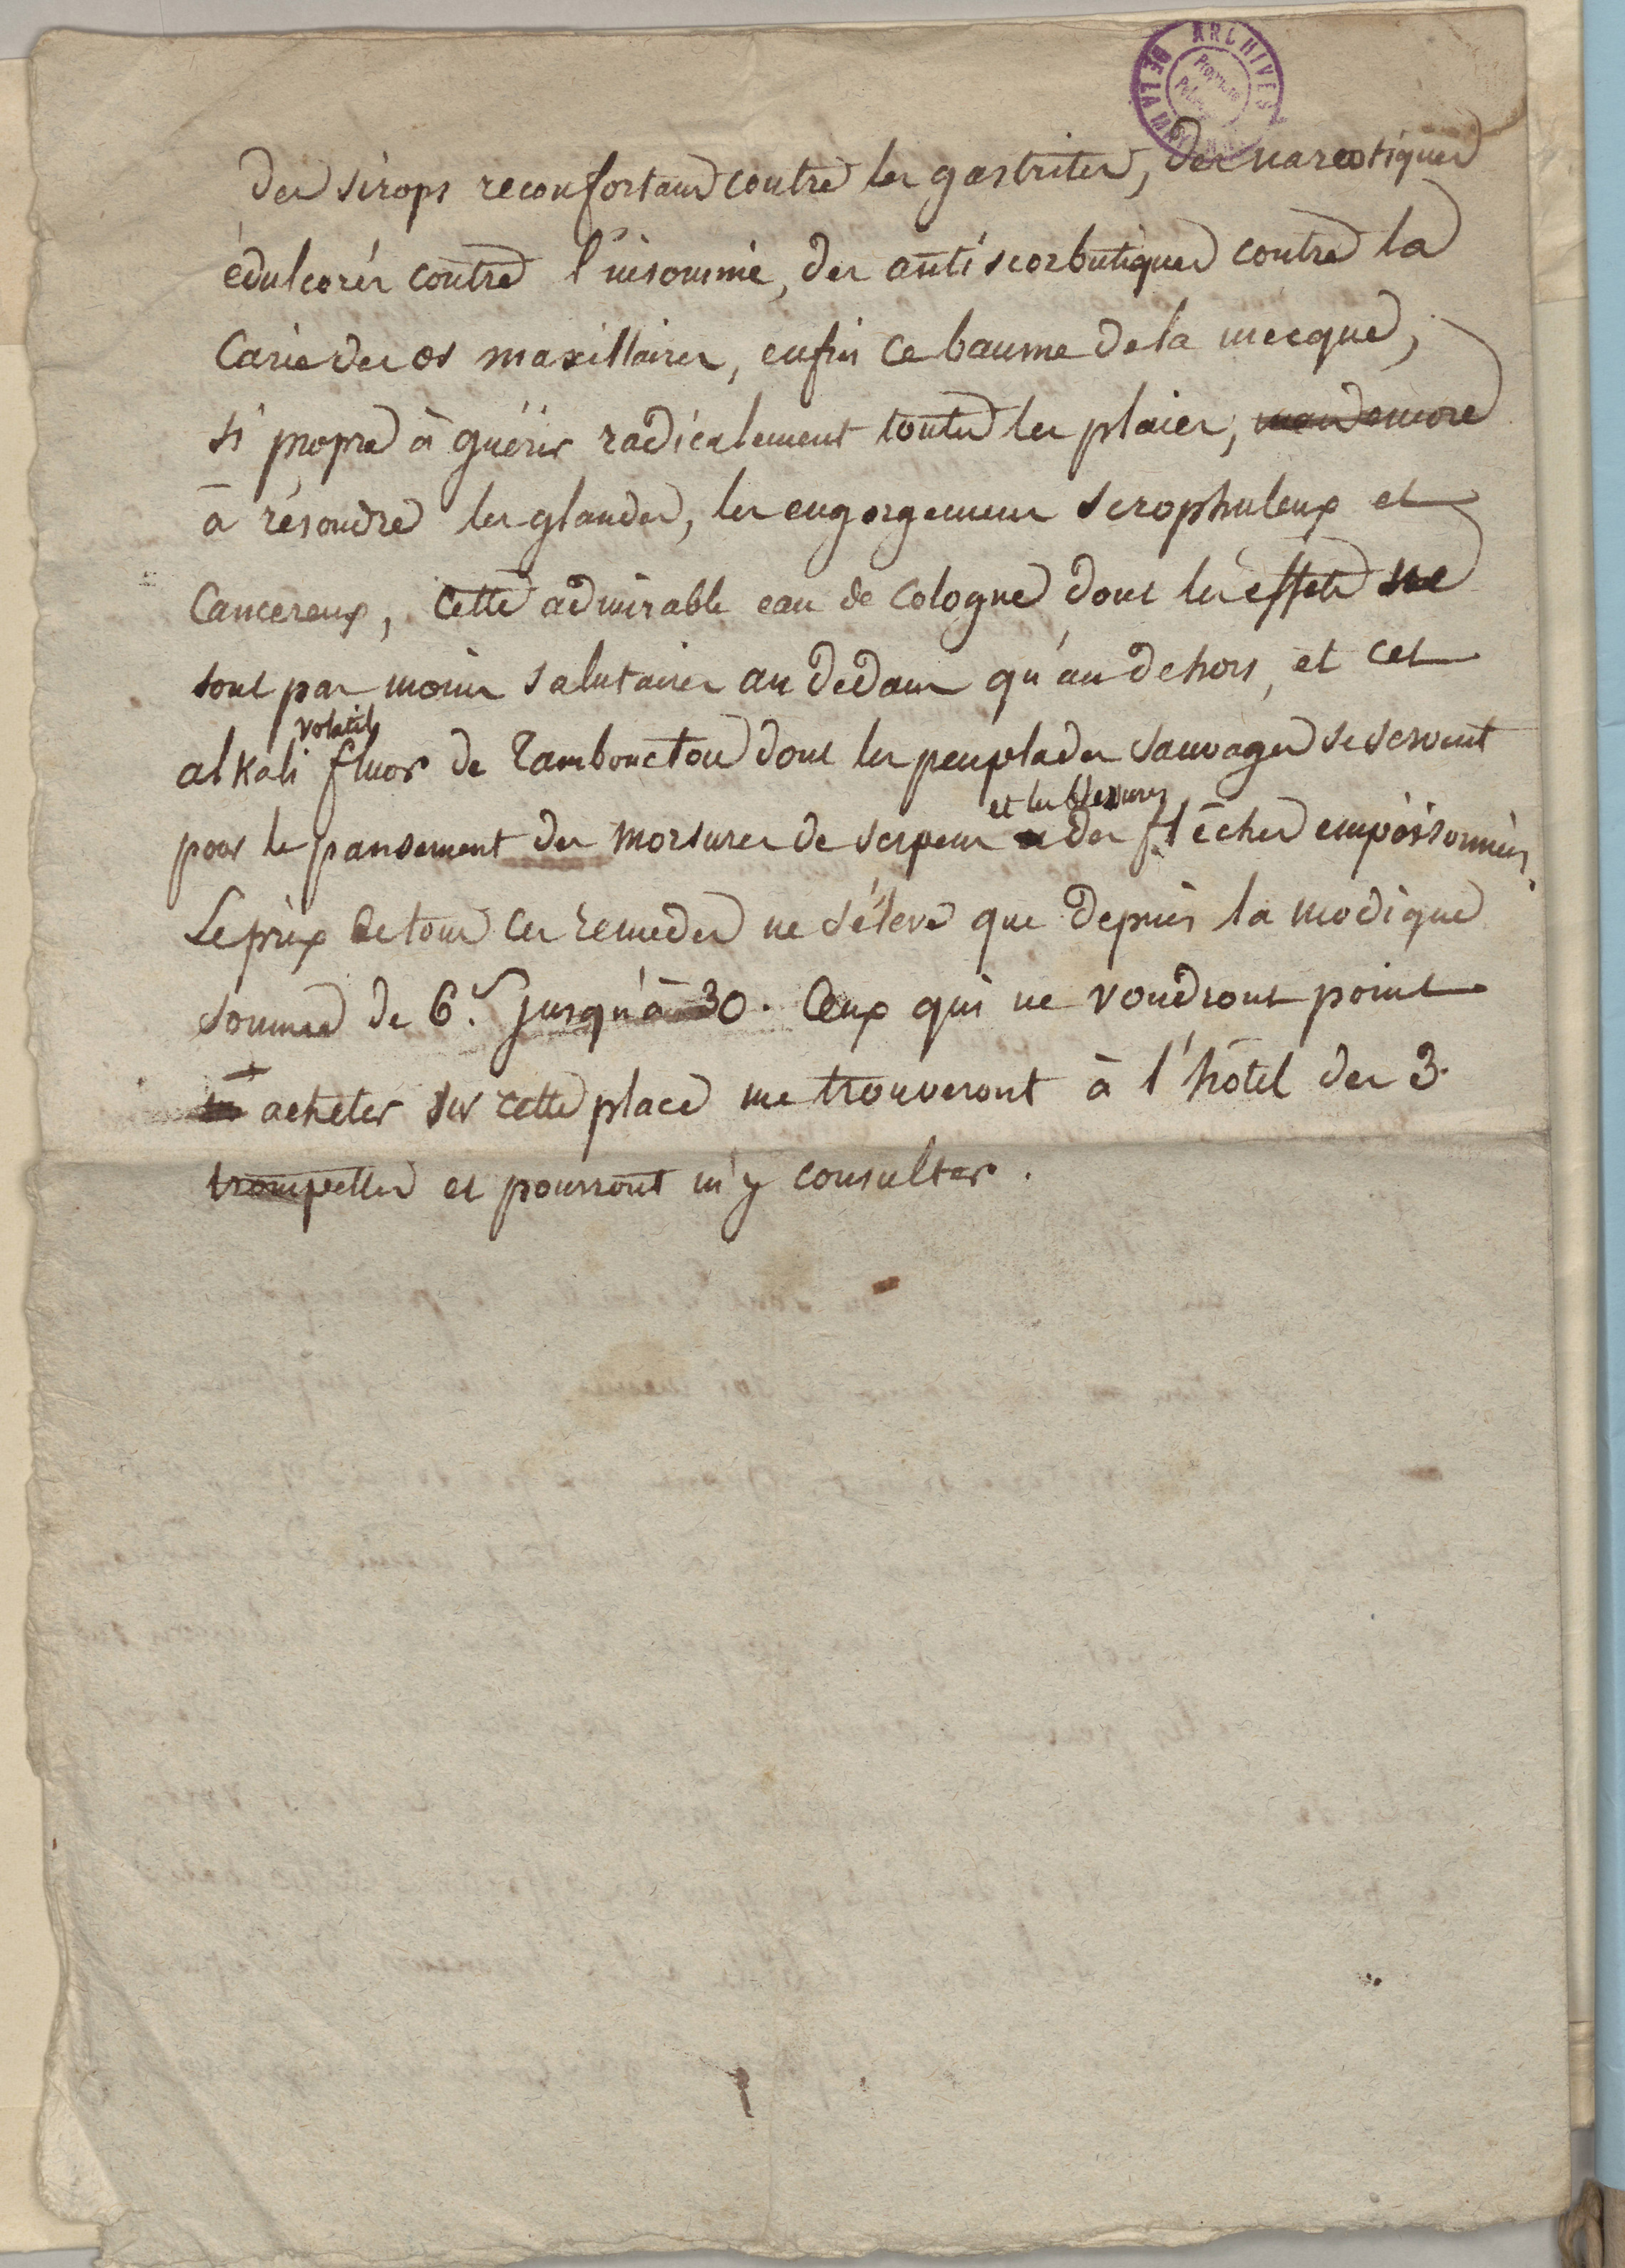 ARCHIVES DE LA
des sirops reconfortans contre les gastrites, des narcotiques
édulcorés contre l'insomnie, des antiscorbutiques contre la
Carie des os maxillaires, enfin ce baume de la mecque,
si propre à guérir radicalement toutes les plaies, encore
à résoudre les glandes, les engorgemens scrophuleux et
Cancereux, cette admirable eau de Cologne dont les effets ne
sont pas moins salutaires au dedans qu'au dehors, et cet
volatil
alkali fluor de Tambouctou dont les peuplades sauvages se servent
et les blessures
pour le pansement des morsures de serpens des flêches empoisonnées.
Le prix de tous ces remedes ne s'éleve que depuis la modique
somme de 6.s jusqu'à 30. Ceux qui ne voudront point
acheter sur cette place me trouveront à l'hôtel des 3
trompettes et pourront m'y consulter.